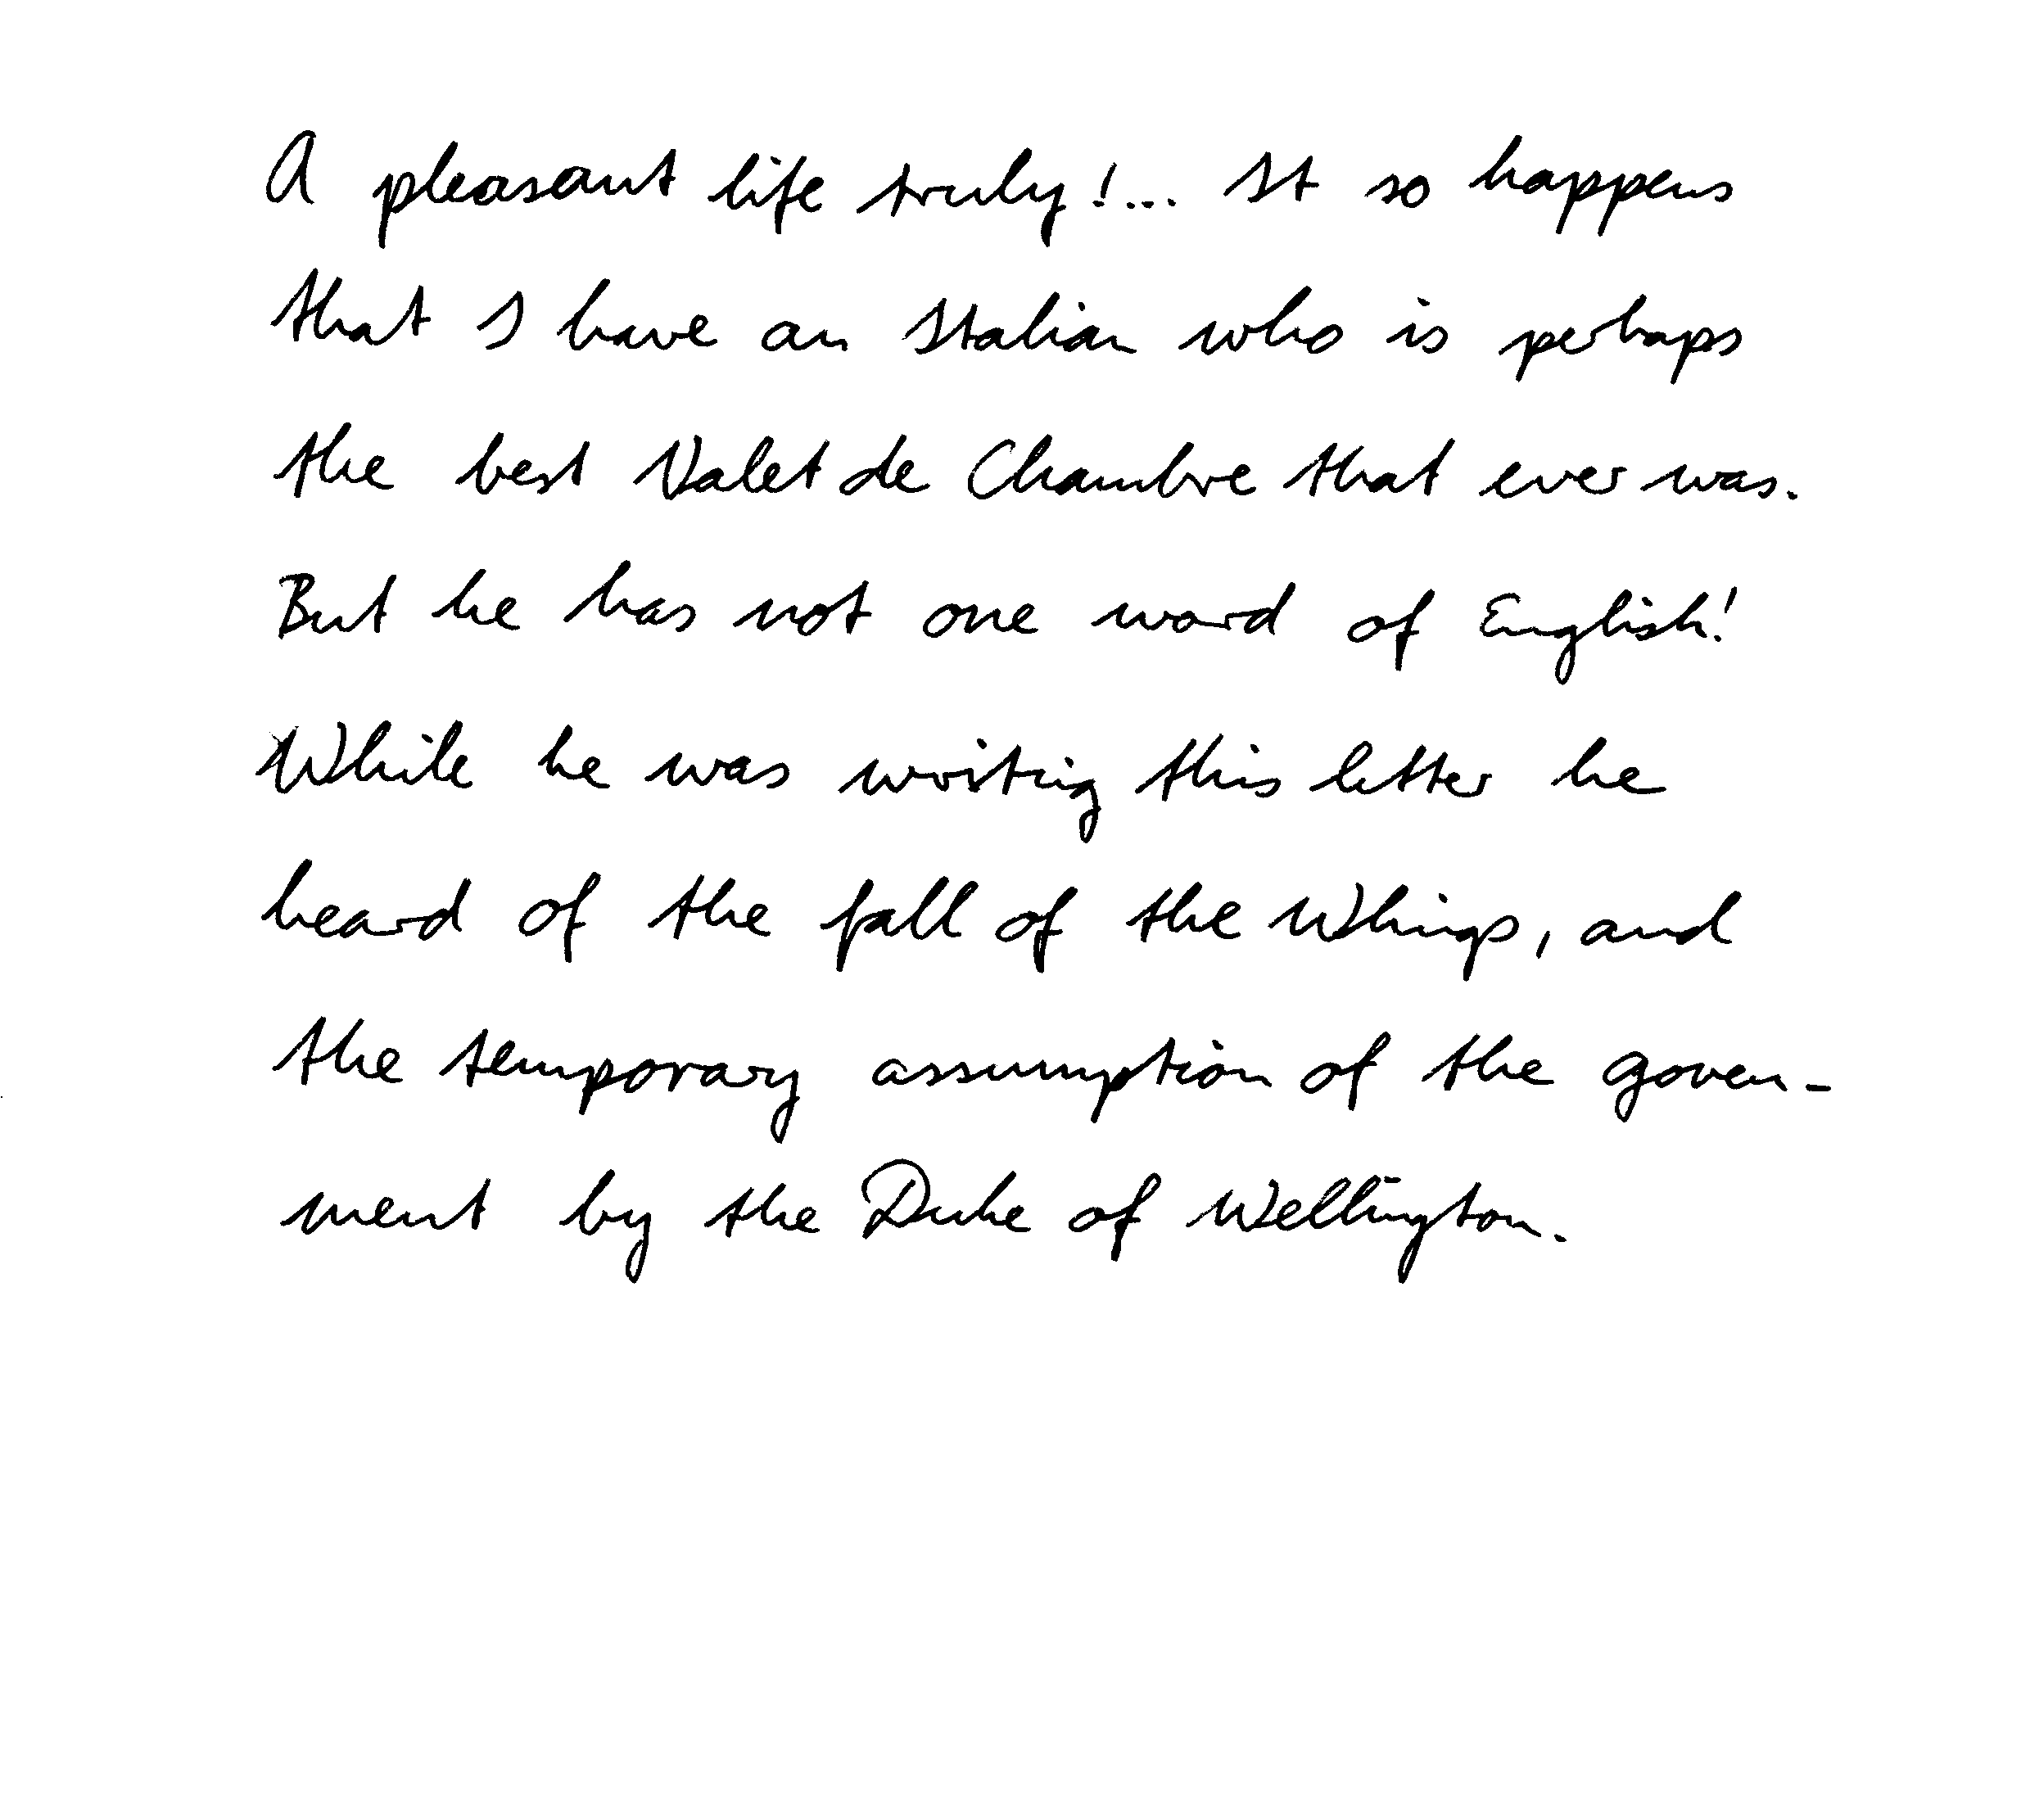 A pleasant life truly!... It so happens
that I have an Italian who is perhaps
the best Valet de Chambre that ever was.
But he has not one word of English!
While he was writing this letter he
heard of the fall of the Whigs, and
the temporary assumption of the goven-
ment by the Duke of Wellington.